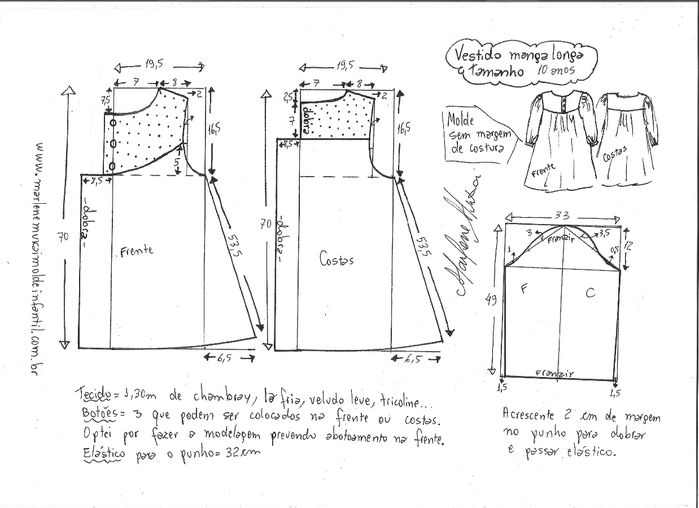 Vestido manga longa
tamanho 10 anos
Molde
sem margem
de costura
Frente
Costas
www.marlenemukaimoldeinfantil.com.br
19,5
7
8
2
7,5
16,5
5
7,5
-dobra-
70
Frente
53,5
6,5
19,5
7
8
2
2,5
7
dobra
16,5
8,5
-dobra-
70
Costas
53,5
6,5
Marlene Mukai
33
3
3,5
Franzir
1
0,5
12
49
F
C
Franzir
1,5
1,5
Tecido= 1,30m de chambray, lã fria, veludo leve, tricoline...
Botões= 3 que podem ser colocados na frente ou costas.
Optei por fazer a modelagem prevendo abotoamento na frente.
Elástico para o punho= 32cm
Acrescente 2 cm de margem
no punho para dobrar
e passar elástico.